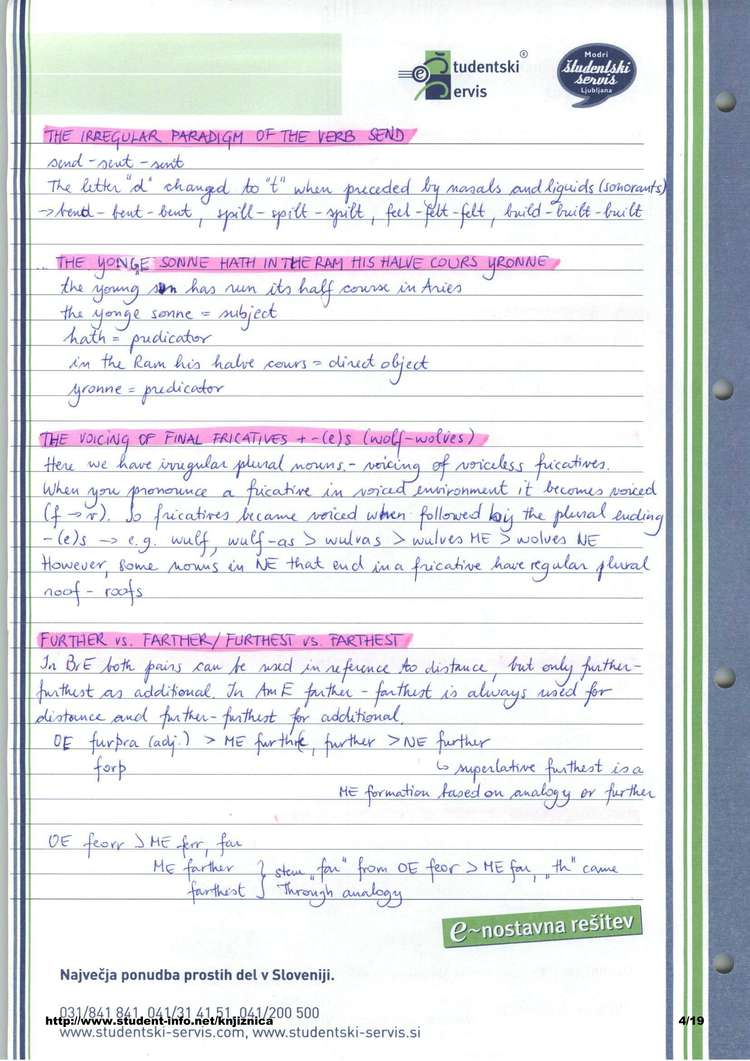 Študentski
eServis
®
Modri
študentski
servis
Ljubljana
THE IRREGULAR PARADIGM OF THE VERB SEND
send - sent - sent
The letter "d" changed to "t" when preceded by nasals and liquids (sonorants)
→ bend - bent - bent, spill - spilt - spilt, feel - felt - felt, build - built - built
... THE YONGE SONNE HATH IN THE RAM HIS HALVE COURS YRONNE
the young sun has run its half course in Aries
the yonge sonne = subject
hath = predicator
in the Ram his halve cours = direct object
yronne = predicator
THE VOICING OF FINAL FRICATIVES + -(e)s (wolf-wolves)
Here we have irregular plural nouns. - voicing of voiceless fricatives.
When you pronounce a fricative in voiced environment it becomes voiced
(f → v). So fricatives became voiced when followed by the plural ending
-(e)s → e.g. wulf, wulf-as > wulvas > wulves ME > wolves NE
However, some nouns in NE that end in a fricative have regular plural
roof - roofs
FURTHER vs. FARTHER / FURTHEST vs. FARTHEST
In BrE both pairs can be used in reference to distance, but only further-
furthest as additional. In AmE farther - farthest is always used for
distance and further-furthest for additional.
OE furþra (adj.) > ME furthre, further > NE further
forþ ↳ superlative furthest is a
ME formation based on analogy or further
OE feorr > ME ferr, far
ME farther } stem "far" from OE feor > ME far, "th" came
farthest } through analogy
e~nostavna rešitev
Največja ponudba prostih del v Sloveniji.
031/841 841, 041/31 41 51, 041/200 500
http://www.student-info.net/knjiznica 4/19
www.studentski-servis.com, www.studentski-servis.si